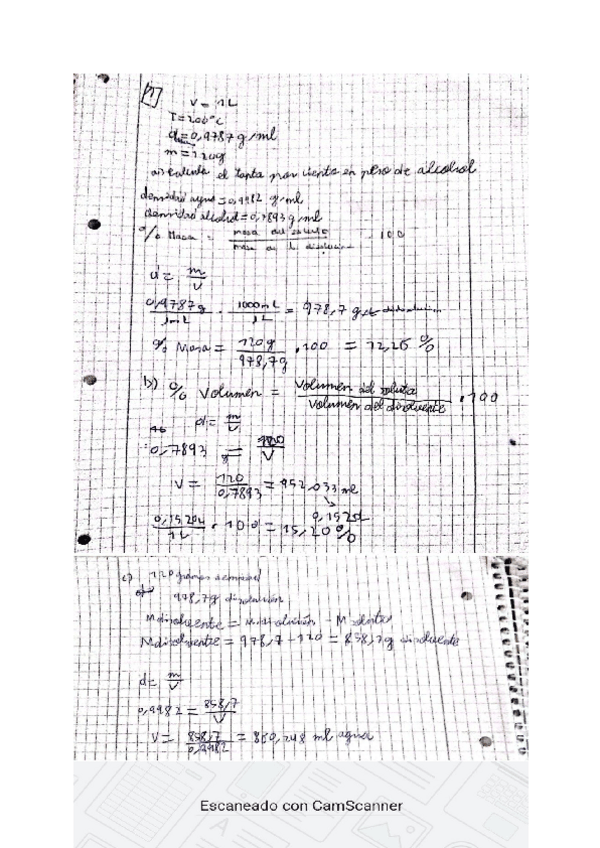 1
V = 1L
T = 200°C
d = 0,9787 g/ml
m = 120g
a) Calcula el tanto por ciento en peso de alcohol
densidad agua = 0,9982 g/ml
densidad alcohol = 0,7893 g/ml
% Masa = masa del soluto / masa de la disolución · 100
d = m / V
0,9787g / 1mL · 1000mL / 1L = 978,7 g
% Masa = 120g / 978,7g · 100 = 12,26 %
b) % Volumen = Volumen del soluto / Volumen del disolvente · 100
d = m / V
0,7893 = 120 / V
V = 120 / 0,7893 = 152,033 ml
0,152L
0,1520L / 1L · 100 = 15,20 %
c) 120 gramos
978,7g disolución
M disolvente = M disolución - M soluto
M disolvente = 978,7 - 120 = 858,7 g disolvente
d = m / V
0,9982 = 858,7 / V
V = 858,7 / 0,9982 = 860,248 ml agua
Escaneado con CamScanner